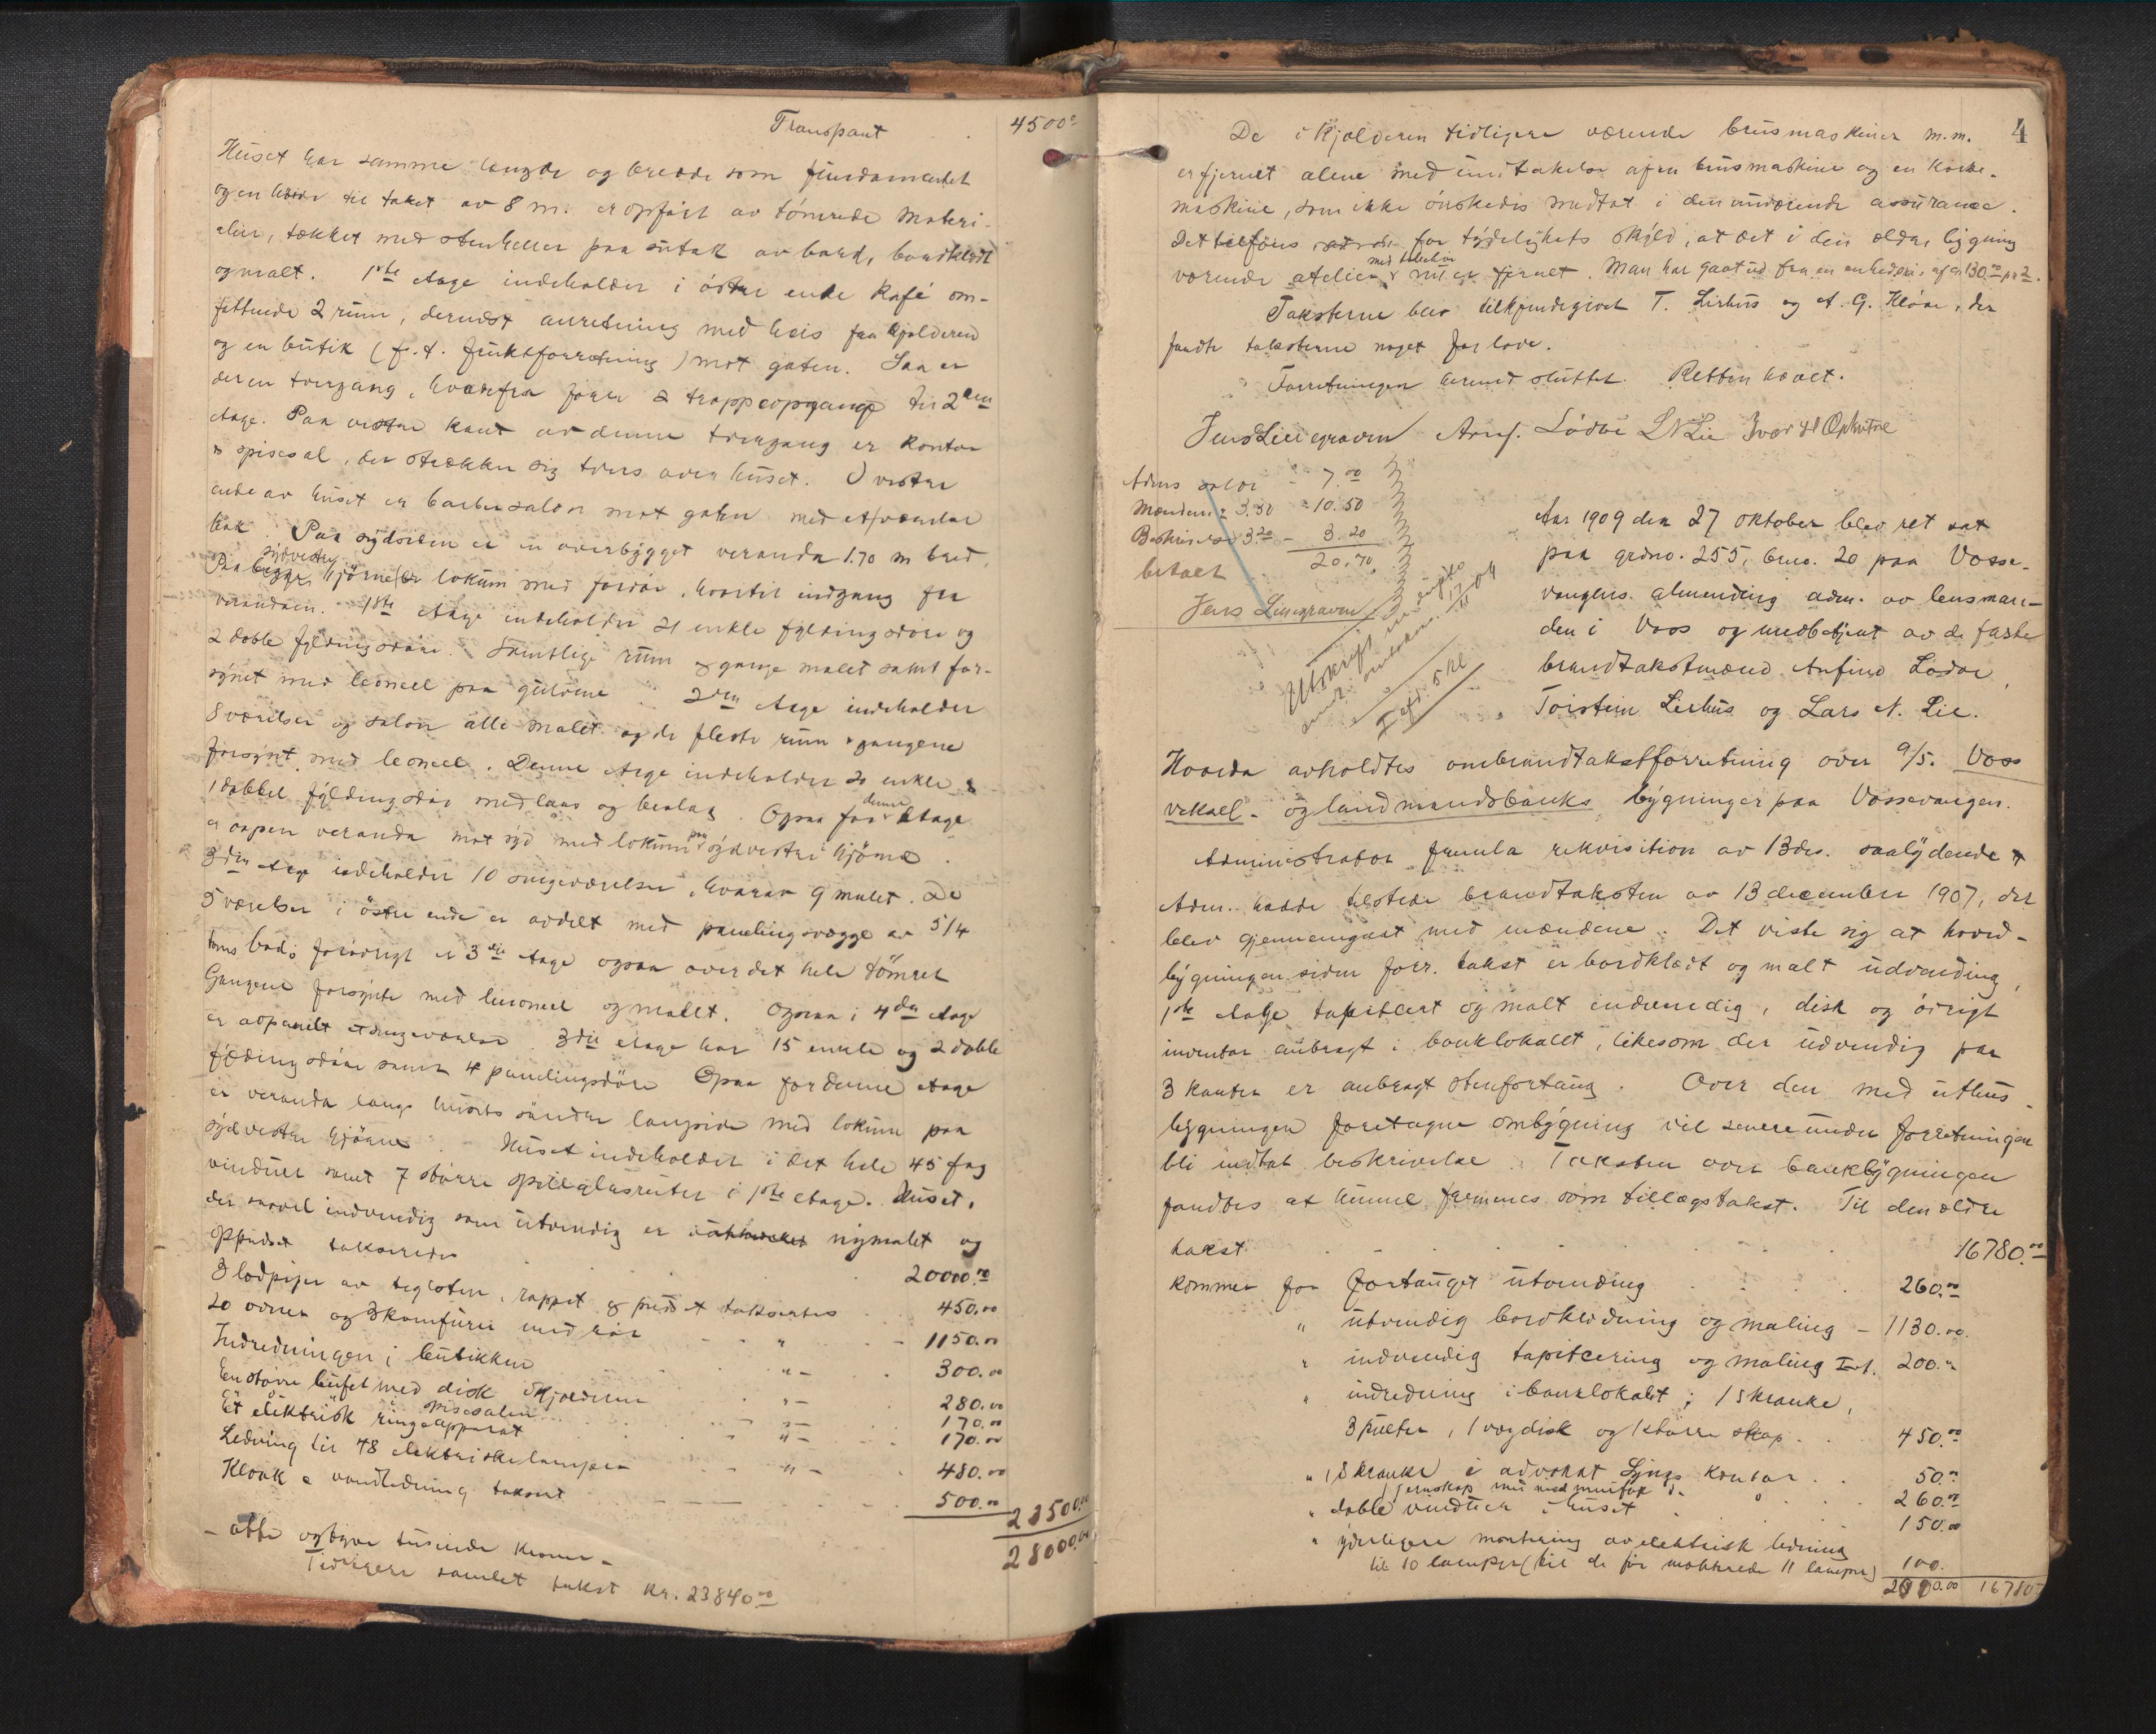 Transport 4500.
Huset har samme længde og bredde som fundamentet
og en høide til taket av 8 m. er opført av tømrede materi-
alier, tækket med stenheller paa sutak av bord, bordklædt
og malt. 1ste etage indeholder i østre ende kafé om-
fattende 2 rum, dernæst anretning med heis fra kjælderen
og en butik (f. t. fruktforretning) mot gaten. Saa er
der en tvergang, hvorfra fører 2 trappeopgange til 2den
etage. Paa vestre kant av denne tvergang er kontor
& spisesal, der strækker sig tvers over huset. I vestre
ende av huset er barbersalon mot gaten med
bak. Paa sydsiden er en overbygget veranda 1.70 m bred.
Paa sydvestre hjørne er lokum med fordør, hvortil indgang fra
verandaen. 1ste etage indeholder 21 enkle fyldingsdøre og
2 doble fyldingsdøre. Samtlige rum & gange malet samt for-
synet med linoneel paa gulvene. 2den etage indeholder
8 værelser og salon alle malet og de fleste rum & gangene
forsynt med linoneel. Denne etage indeholder 20 enkle &
1 dobbel fyldingsdør med laas og beslag. Ogsaa for denne etage
er aapen veranda mot syd med lokum paa sydvestre hjørne.
3die etage indeholder 10 soveværelser, hvorav 9 malet. De
5 værelser i østre ende er avdelt med panelingsvægge av 5/4
toms bord; forøvrigt er 3die etage ogsaa over det hele tømret
Gangene forsynte med linoneel og malet. Ogsaa i 4de etage
er avpanelt et soveværelse. 3die etage har 15 enkle og 2 doble
fyldingsdøre samt 4 panelingsdøre Ogsaa for denne etage
er veranda langs husets søndre langside med lokum paa
sydvestre hjørne. Huset indeholder i det hele 45 fag
vinduer samt 7 større speilglasruter i 1ste etage. Huset,
der saavel indvendig som utvendig er nymalet og
oppudset takseredes 20000.00
3 lodpiper av teglsten, rappet & pudset takseredes 450.00
20 ovner og 3 komfurer med rør " 1150.00
Indredningen i butikken " - 300.00
En større buffet med disk i kjælderen " - 280.00
" spisesalen " - 170.00
Et elektrisk ringeapparat " - 170.00
Ledning til 48 elektriske lamper " - 480.00
Kloak & vandledning takseret 500.00 23500.00
28000.00
- otte og tyve tusinde kroner -
Tidligere samlet takst kr. 23840.00
4
De i kjælderen tidligere værende brusmaskiner m.m.
er fjernet alene med undtakelse af en brusmaskine og en korke-
maskine, som ikke ønskedes medtat i den nuværende assurance.
Det tilføies for tydelighets skyld, at det i den ældre bygning
værende atelier med tilbehør nu er fjernet. Man har gaat ud fra en enhedspris af kr 130.00 pr m2.
Taksterne blev tilkjendegivet T. Lirhus og A. G. Kløve, der
fandt taksterne noget for lave.
Forretningen hermed sluttet. Retten hævet.
Jens Liliegraven Arnf. Lødve L N Lie Ivar H Opheim
Adms salær - 7.00
Mændene à 3.50 - 10.50
Beskrivelse 3.20 - 3.20
betalt 20.70
Jens Liliegraven
Utskrift
Aar 1909 den 27 oktober blev ret sat
paa grdno. 255, brno. 20 paa Vosse-
vangens almending adm. av lensman-
den i Voss og medbetjent av de faste
brandtakstmænd Anfind Lødve,
Torstein Lirhus og Lars N. Lie.
Hvorda avholdtes ombrandtakstforretning over A/S. Voss
veksel- og landmandsbanks bygninger paa Vossevangen.
Administrator fremla rekvisition av 13ds. saalydende
Adm. hadde tilstede brandtaksten av 13 december 1907, der
blev gjennemgaat med mændene. Det viste sig at hoved-
bygningen siden forr. takst er bordklædt og malt udvendig,
1ste etage tapitsert og malt indvendig, disk og øvrigt
inventar anbragt i banklokalet, likesom der udvendig paa
3 kanter er anbragt stenfortaug. Over den med uthus-
bygningen foretagne ombygning vil senere under forretningen
bli indtat beskrivelse. Taksten over bankbygningen
fandtes at kunne fremmes som tillægstakst. Til den ældre
takst 16780.00
kommer for fortauget utvendig 260.00
" utvendig bordklædning og maling - 1130.00.
" indvendig tapitsering og maling 1 et. 200.00
" indredning i banklokalet; 1 skranke,
3 pulter, 1 vægdisk og 1 større skap 450.00
" 1 skranke i advokat Lyngs kontor 50.00
1 jernskap 260.00
" doble vinduer i huset 150.00
" yderligere montering av elektrisk ledning
til 10 lamper (til de før monterede 11 lamper) 100.
16780